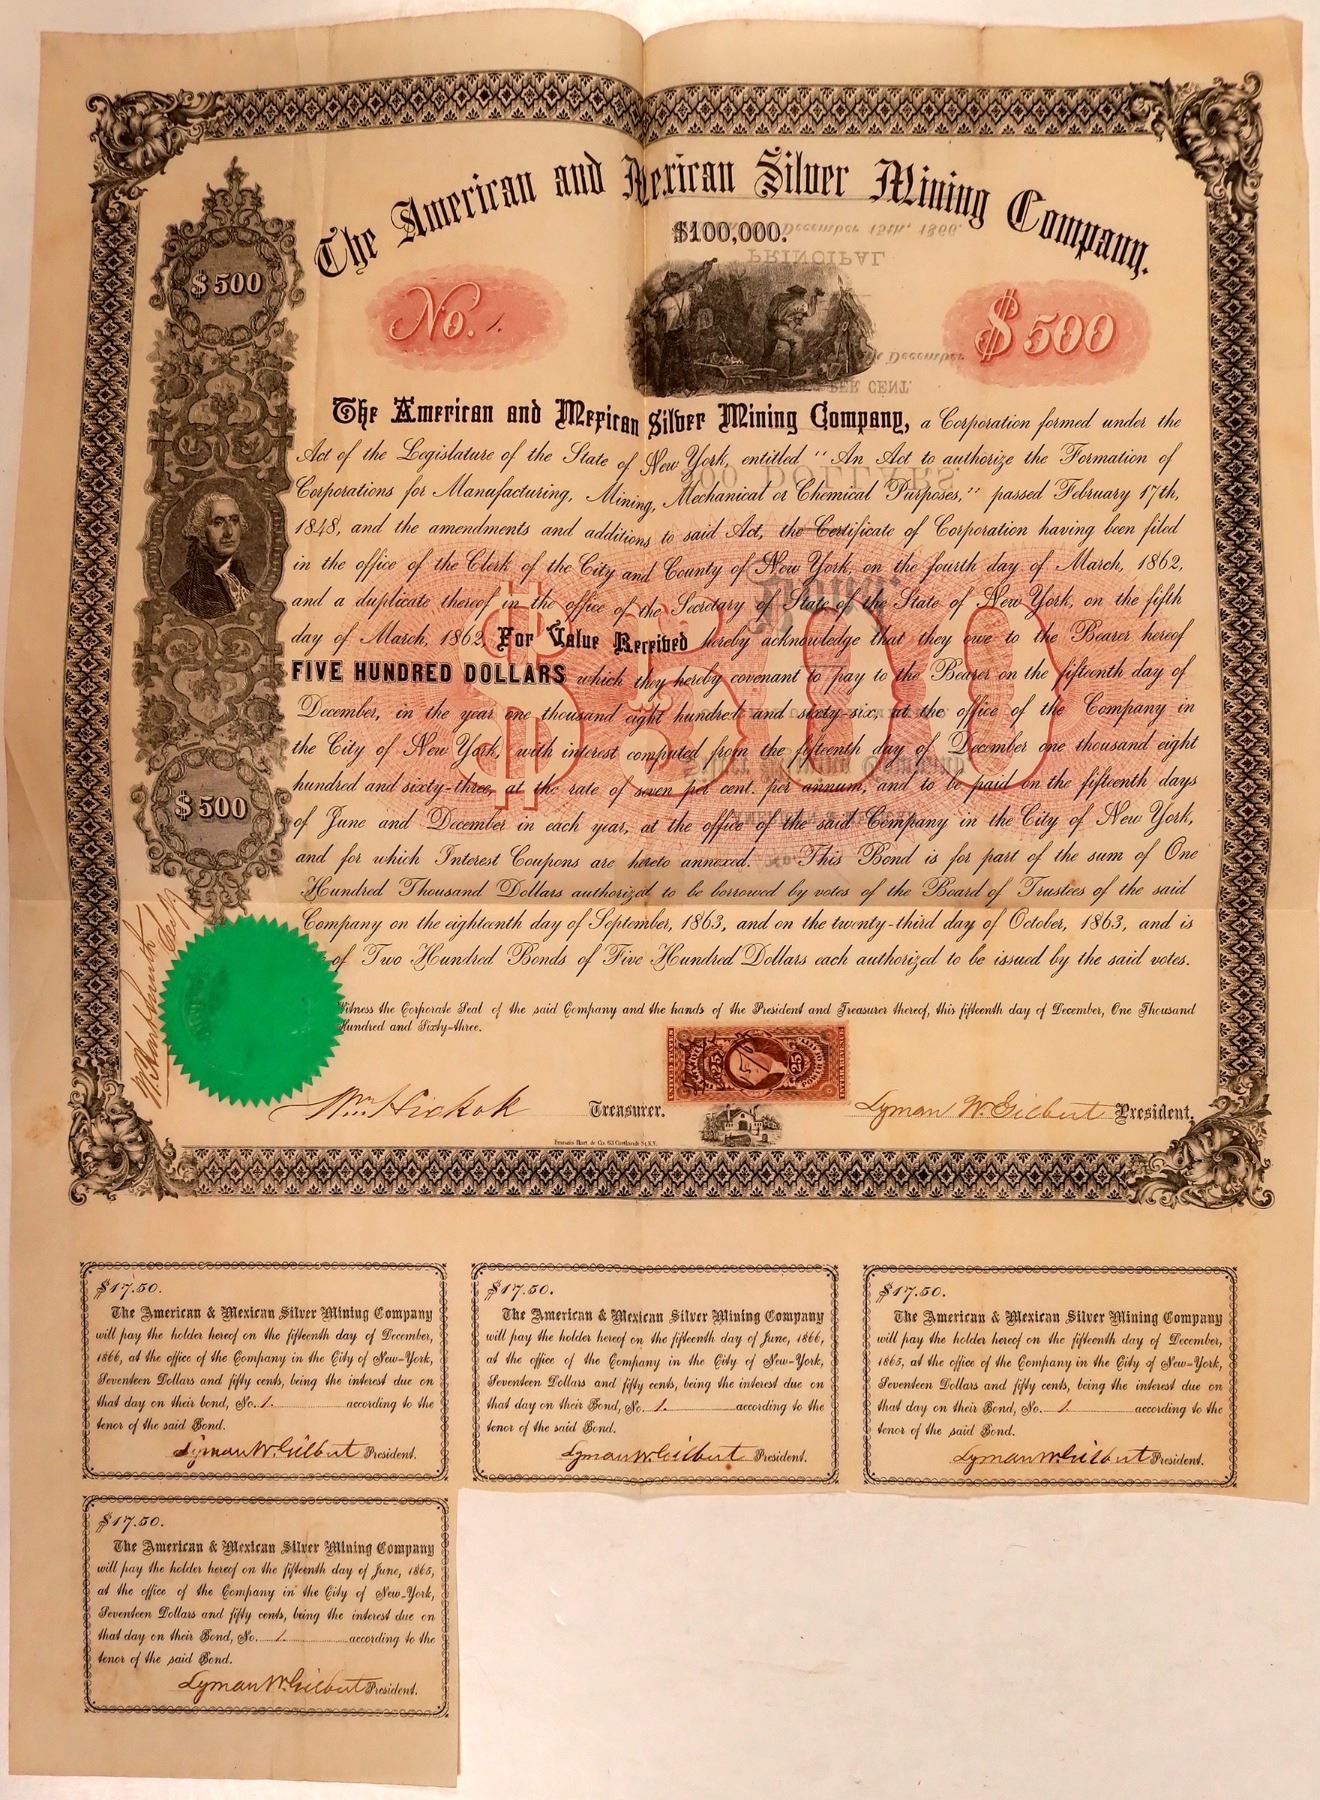 The American and Mexican Silver Mining Company.
$100,000.
$500
No. 1.
$500
The American and Mexican Silver Mining Company, a Corporation formed under the
Act of the Legislature of the State of New York, entitled "An Act to authorize the Formation of
Corporations for Manufacturing, Mining, Mechanical or Chemical Purposes," passed February 17th,
1848, and the amendments and additions to said Act, the Certificate of Corporation having been filed
in the office of the Clerk of the City and County of New York, on the fourth day of March, 1862,
and a duplicate thereof in the office of the Secretary of State of the State of New York, on the fifth
day of March, 1862, For Value Received hereby acknowledge that they owe to the Bearer hereof
FIVE HUNDRED DOLLARS which they hereby covenant to pay to the Bearer on the fifteenth day of
December, in the year one thousand eight hundred and sixty-six, at the office of the Company in
the City of New York, with interest computed from the fifteenth day of December one thousand eight
hundred and sixty-three, at the rate of seven per cent. per annum, and to be paid on the fifteenth days
of June and December in each year, at the office of the said Company in the City of New York,
and for which Interest Coupons are hereto annexed. This Bond is for part of the sum of One
Hundred Thousand Dollars authorized to be borrowed by votes of the Board of Trustees of the said
Company on the eighteenth day of September, 1863, and on the twenty-third day of October, 1863, and is
of Two Hundred Bonds of Five Hundred Dollars each authorized to be issued by the said votes.
$500
$500
Witness the Corporate Seal of the said Company and the hands of the President and Treasurer thereof, this fifteenth day of December, One Thousand
Hundred and Sixty-three.
UNITED STATES
25
25
INTER. REVENUE
Wm Hickok Treasurer.
Lyman W. Gilbert President.
Francis Hart & Co. 63 Cortlandt St. N.Y.
$17.50.
The American & Mexican Silver Mining Company
will pay the holder hereof on the fifteenth day of December,
1866, at the office of the Company in the City of New-York,
Seventeen Dollars and fifty cents, being the interest due on
that day on their bond, No. 1. according to the
tenor of the said Bond.
Lyman W. Gilbert President.
$17.50.
The American & Mexican Silver Mining Company
will pay the holder hereof on the fifteenth day of June, 1866,
at the office of the Company in the City of New-York,
Seventeen Dollars and fifty cents, being the interest due on
that day on their Bond, No. 1. according to the
tenor of the said Bond.
Lyman W. Gilbert President.
$17.50.
The American & Mexican Silver Mining Company
will pay the holder hereof on the fifteenth day of December,
1865, at the office of the Company in the City of New-York,
Seventeen Dollars and fifty cents, being the interest due on
that day on their Bond, No. 1. according to the
tenor of the said Bond.
Lyman W. Gilbert President.
$17.50.
The American & Mexican Silver Mining Company
will pay the holder hereof on the fifteenth day of June, 1865,
at the office of the Company in the City of New-York,
Seventeen Dollars and fifty cents, being the interest due on
that day on their Bond, No. 1. according to the
tenor of the said Bond.
Lyman W. Gilbert President.